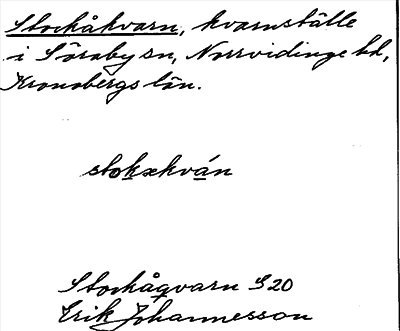 Stockåkvarn, kvarnställe
i Söraby sn, Norrvidinge hd,
Kronobergs län.
stokækván
Stockåqvarn S20
Erik Johannesson